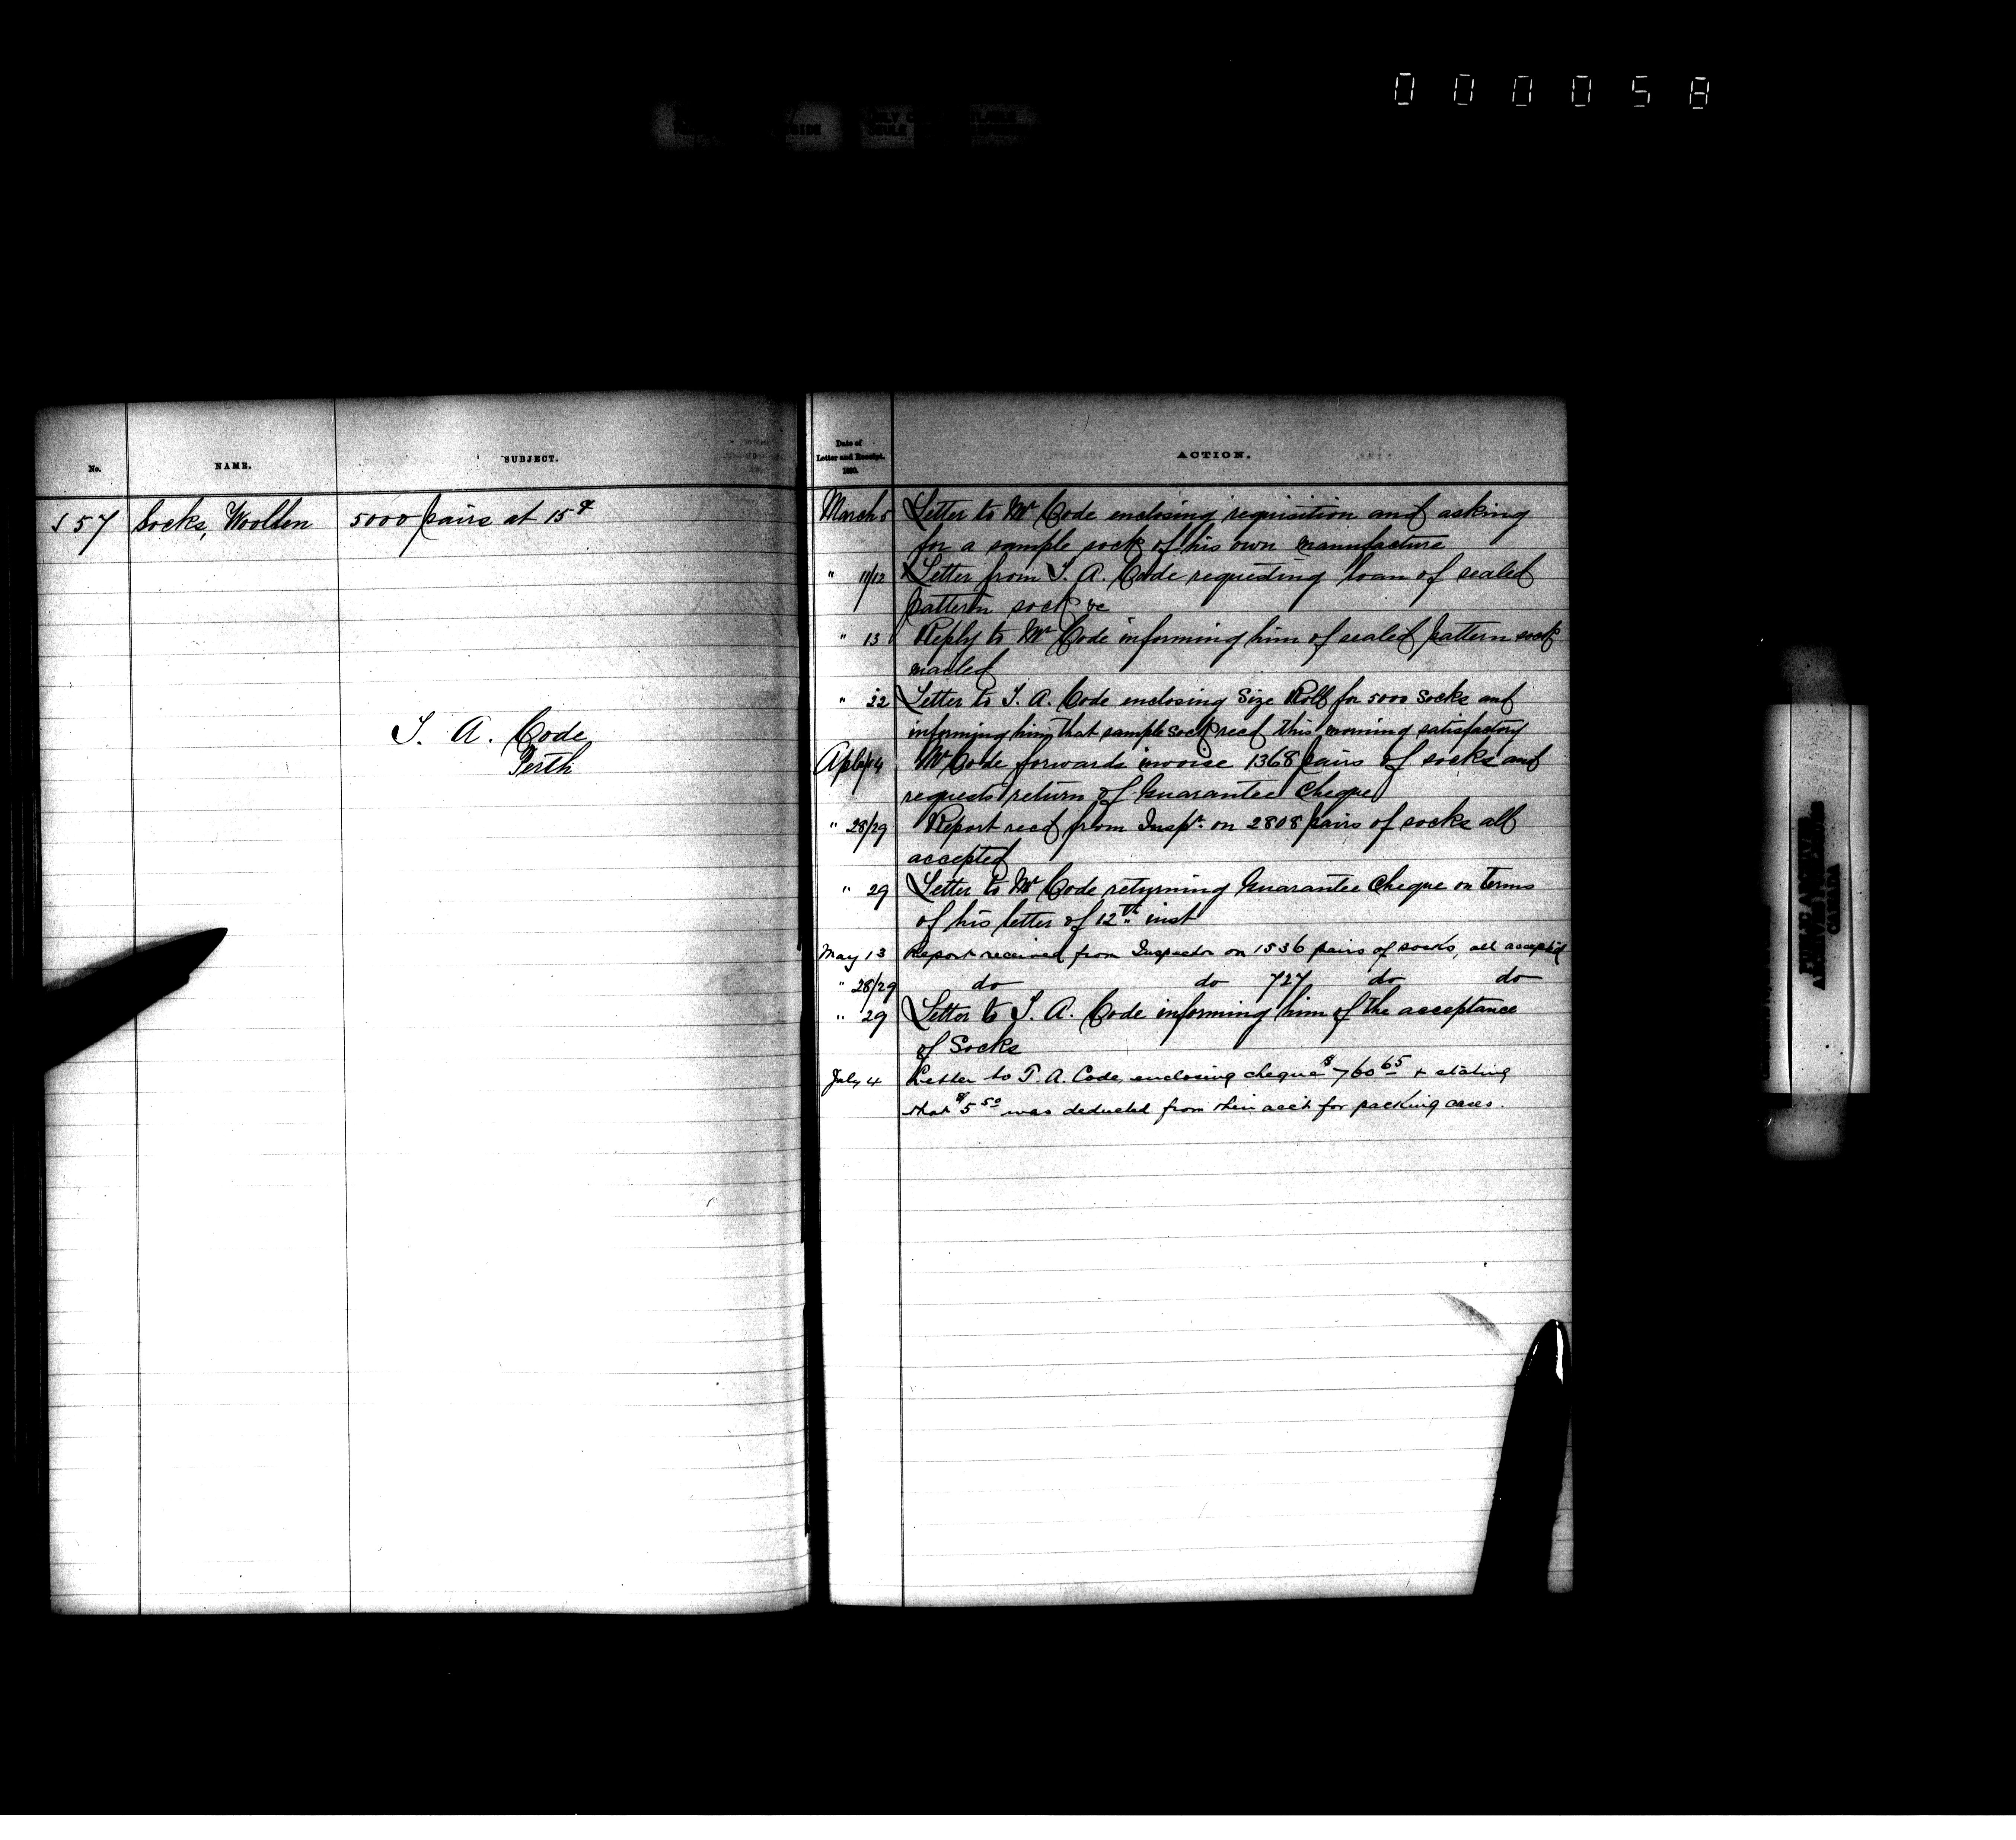 000058
No.
NAME.
SUBJECT.
Date of
Letter and Receipt.
1890.
ACTION.
S 57 Socks, Woollen 5000 pairs at 15¢
T. A. Code
Perth
March 5 Letter to Mr Code enclosing requisition and asking
for a sample sock of his own manufacture
" 11/12 Letter from T. A. Code requesting loan of sealed
pattern sock &c
" 13 Reply to Mr Code informing him of sealed pattern sock
mailed
" 22 Letter to T. A. Code enclosing Size Roll for 5000 Socks and
informing him that sample sock recd this morning satisfactory
Mr Code forwards invoise 1368 pairs of socks and
requests return of Guarantee Cheque
" 28/29 Report recd from Inspr. on 2808 pairs of socks all
accepted
" 29 Letter to Mr Code returning Guarantee Cheque on terms
of his letter of 12th inst
May 13 Report received from Inspector on 1536 pairs of socks, all accepted
" 28/29 do do 727 do do
" 29 Letter to T. A. Code informing him of the acceptance
of Socks
July 4 Letter to T. A. Code, enclosing cheque $760 65 + stating
that $5 50 was deducted from their acct for packing cases.
PUBLIC ARCHIVES
ARCHIVES PUBLIQUES
CANADA